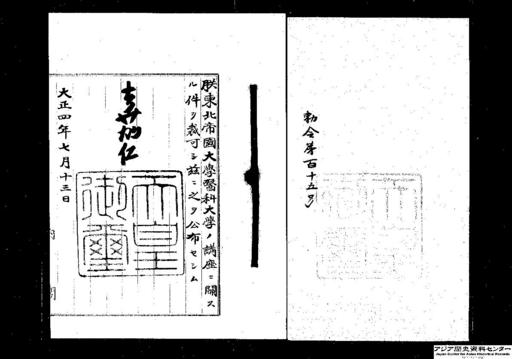 勅令第百十五号
朕東北帝國大學醫科大學ノ講座ニ關ス
ル件ヲ裁可シ茲ニ之ヲ公布セシム
嘉仁
天皇
御璽
大正四年七月十三日
アジア歴史資料センター
Japan Center for Asian Historical Records